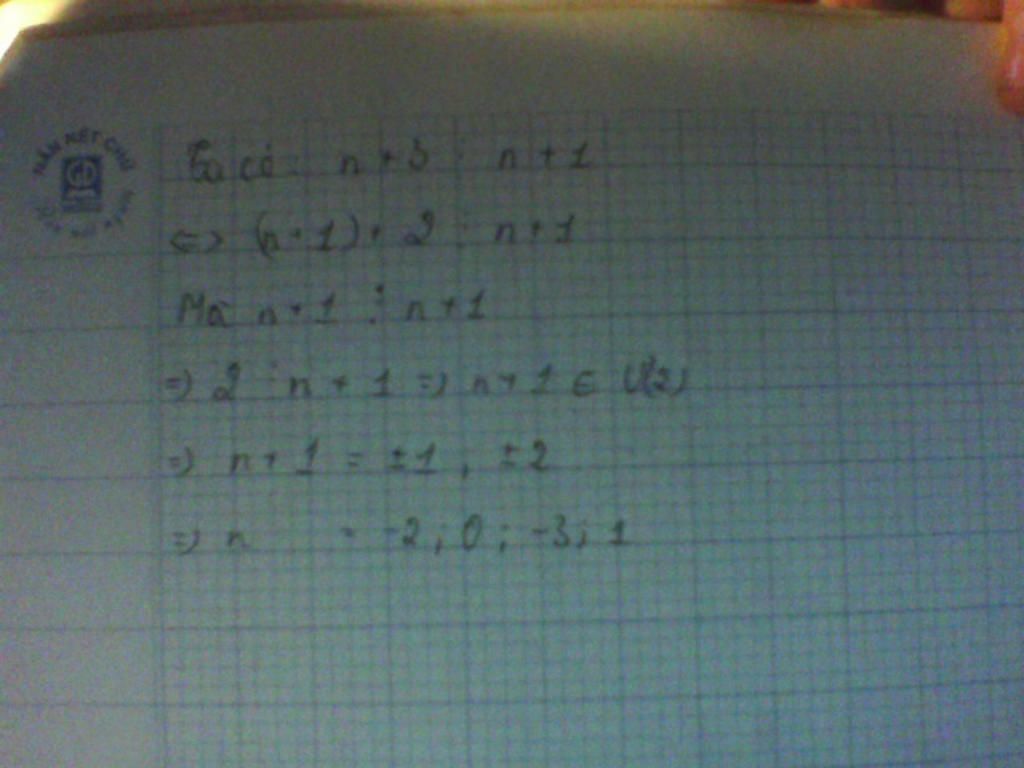 NẮN NÉT CHỮ
Ta có: n + 3 ⋮ n + 1
<=> (n + 1) + 2 ⋮ n + 1
Mà n + 1 ⋮ n + 1
=> 2 ⋮ n + 1 => n + 1 ∈ Ư(2)
=> n + 1 = ±1, ±2
=> n = -2; 0; -3; 1